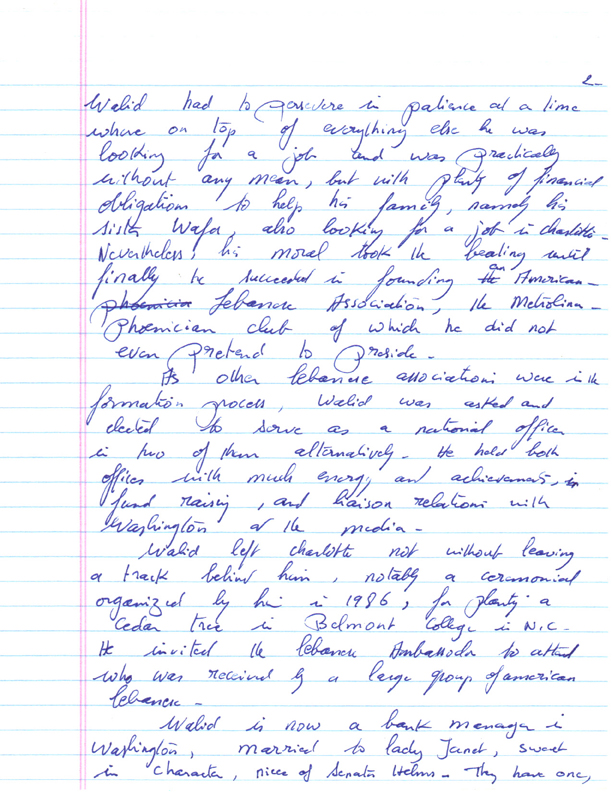 2-
Walid had to persevere in patience at a time
where on top of everything else he was
looking for a job and was practically
without any mean, but with plenty of financial
obligations to help his family, namely his
sister Wafa, also looking for a job in charlotte-
Nevertheless, his moral took the beating until
finally he succeeded in founding the an American-
phoenicia Lebanese Association, the Metrolina-
Phoenician club of which he did not
even pretend to preside-
As other lebanese associations were in the
formation process, Walid was asked and
elected to serve as a national officer
in two of them alternatively- He held both
offices with much energy and achievements, in
fund raising, and liaison relations with
Washington & the media-
Walid left charlotte not without leaving
a track behind him, notably a ceremonial
organized by him in 1986, for planty a
cedar tree in Belmont College in N.C-
He invited the lebanese Ambassador to attend
who was received by a large group of american
lebanese-
Walid is now a bank manager in
Washington, married to lady Janet, sweet
in character, niece of Senator Helms- They have one,